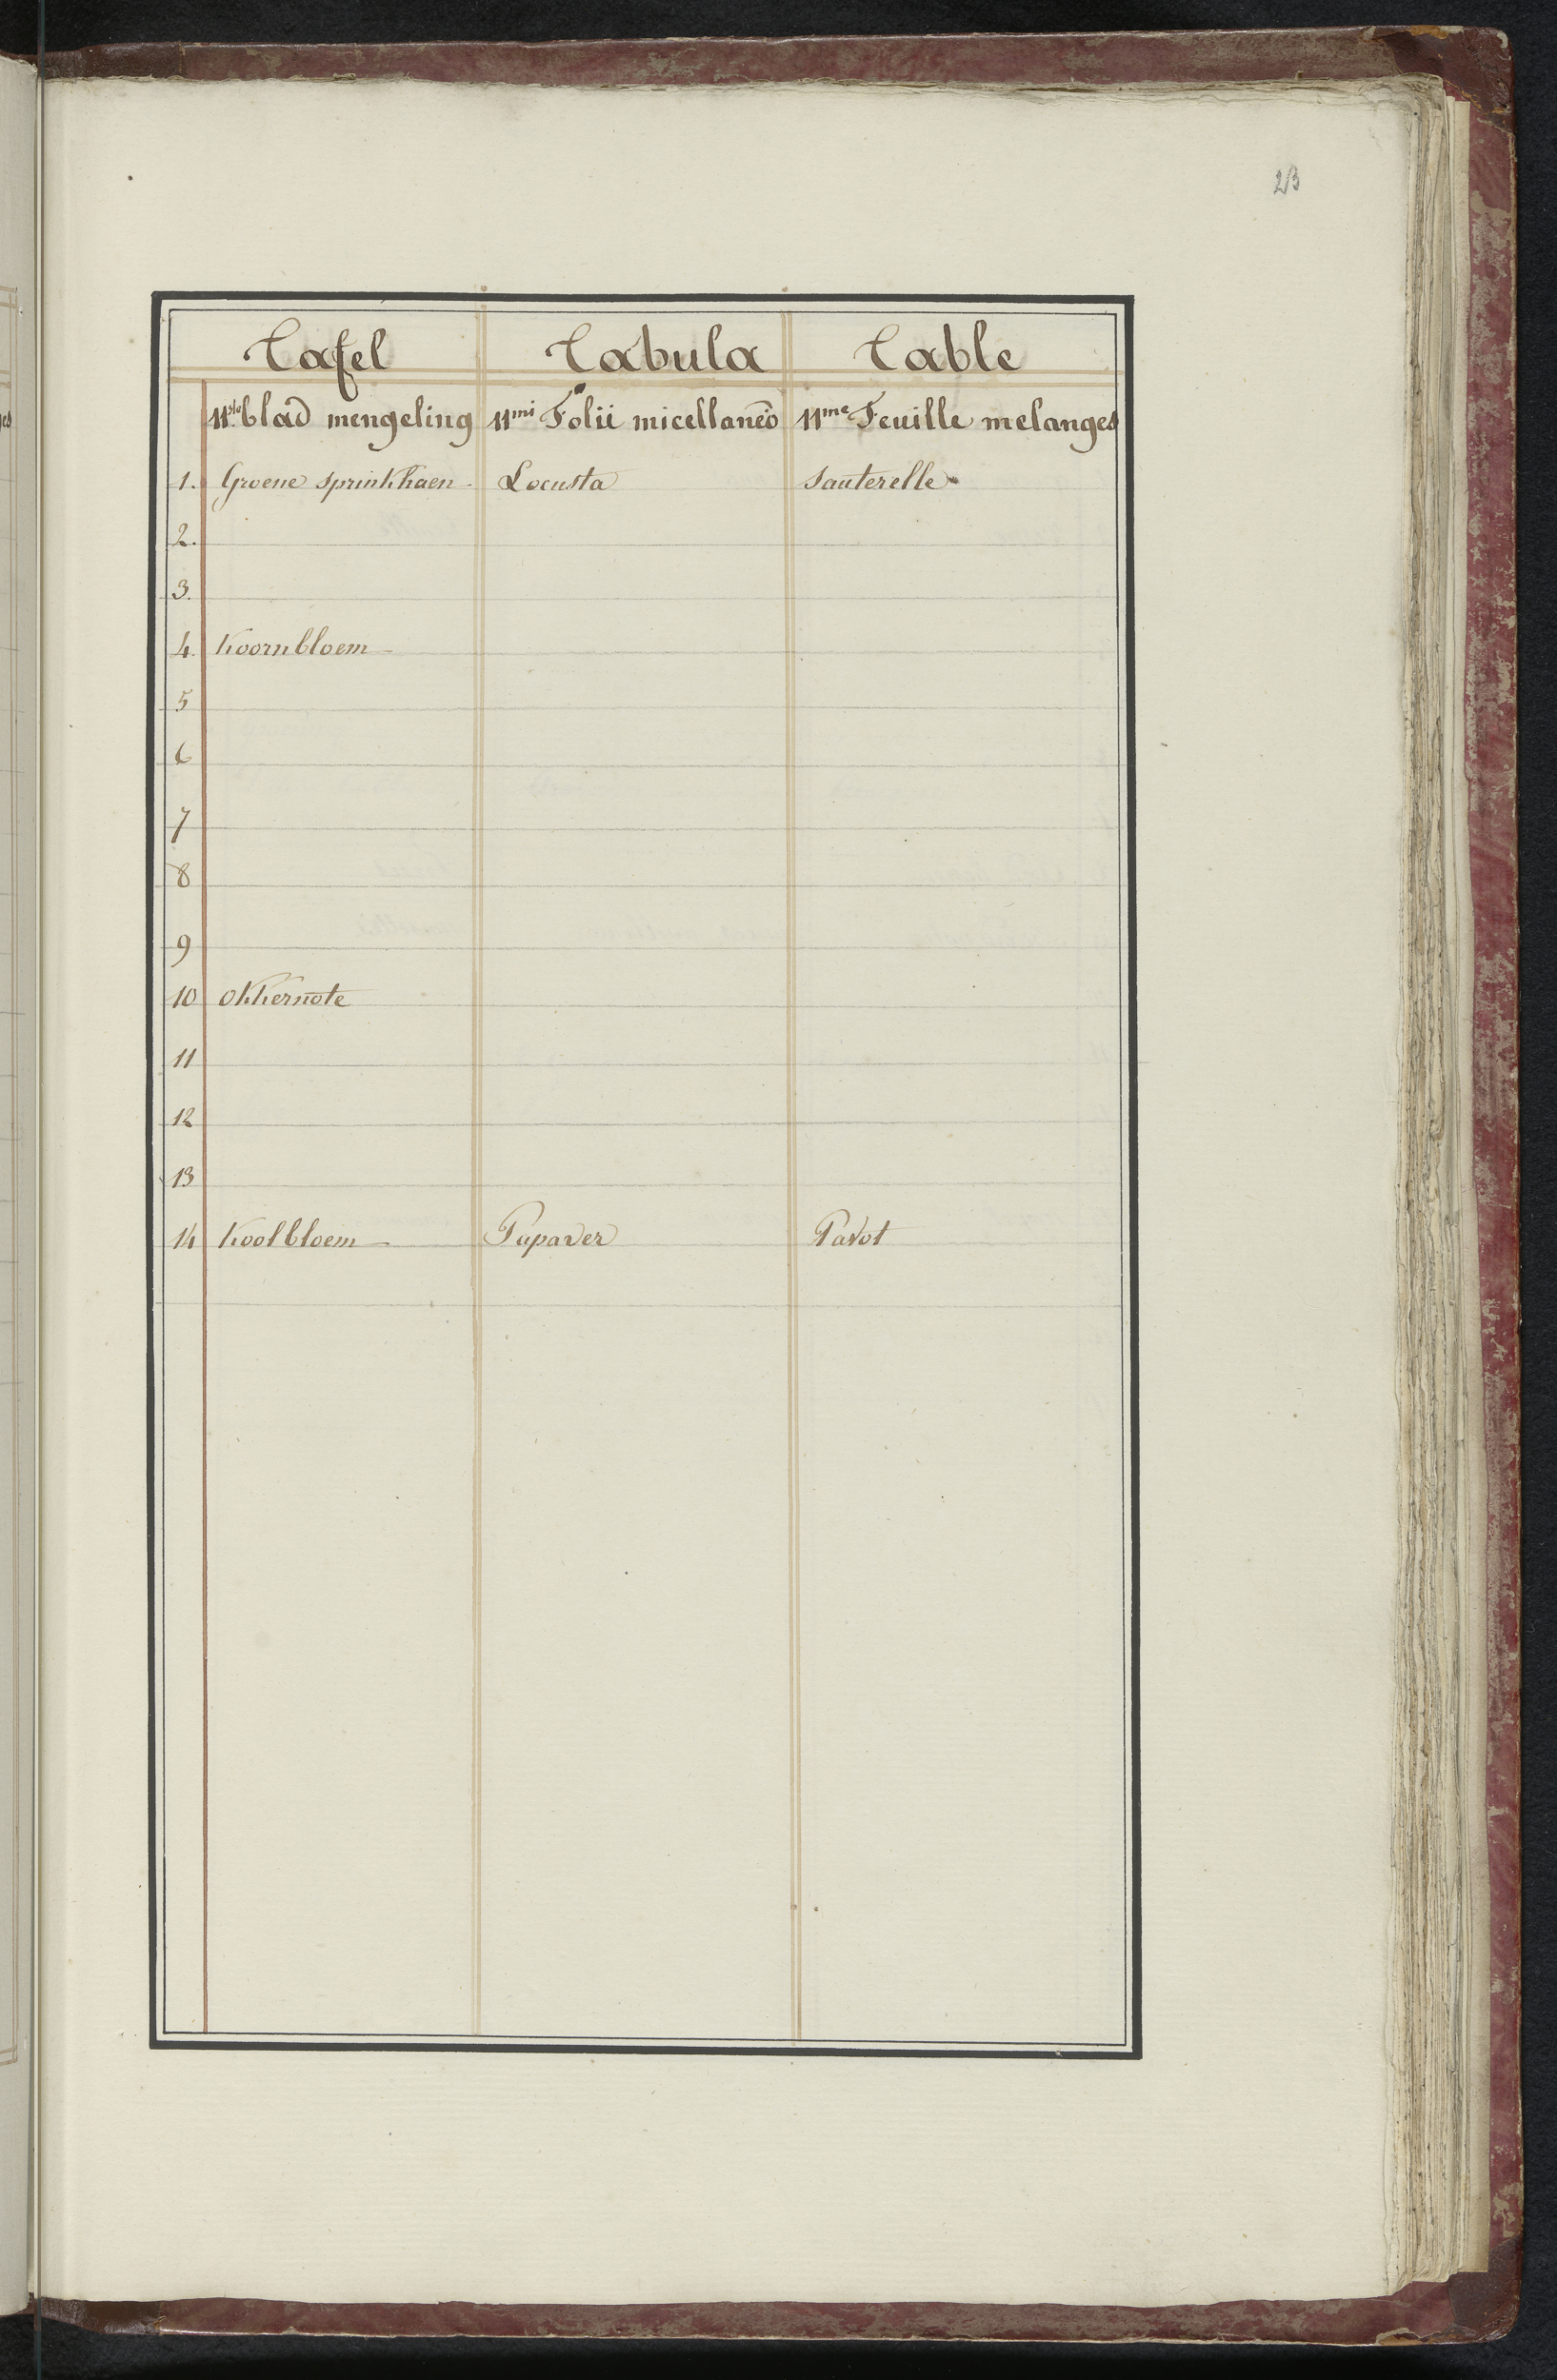 23
Tafel Tabula Table
11ste blad mengeling 11mi Folii micellaneo 11me Feuille melanges
1. Groene sprinkhaen Locusta Sauterelle
2.
3.
4. Koornbloem
5
6
7
8
9
10 Okkernote
11
12
13
14 Koolbloem Papaver Pavot